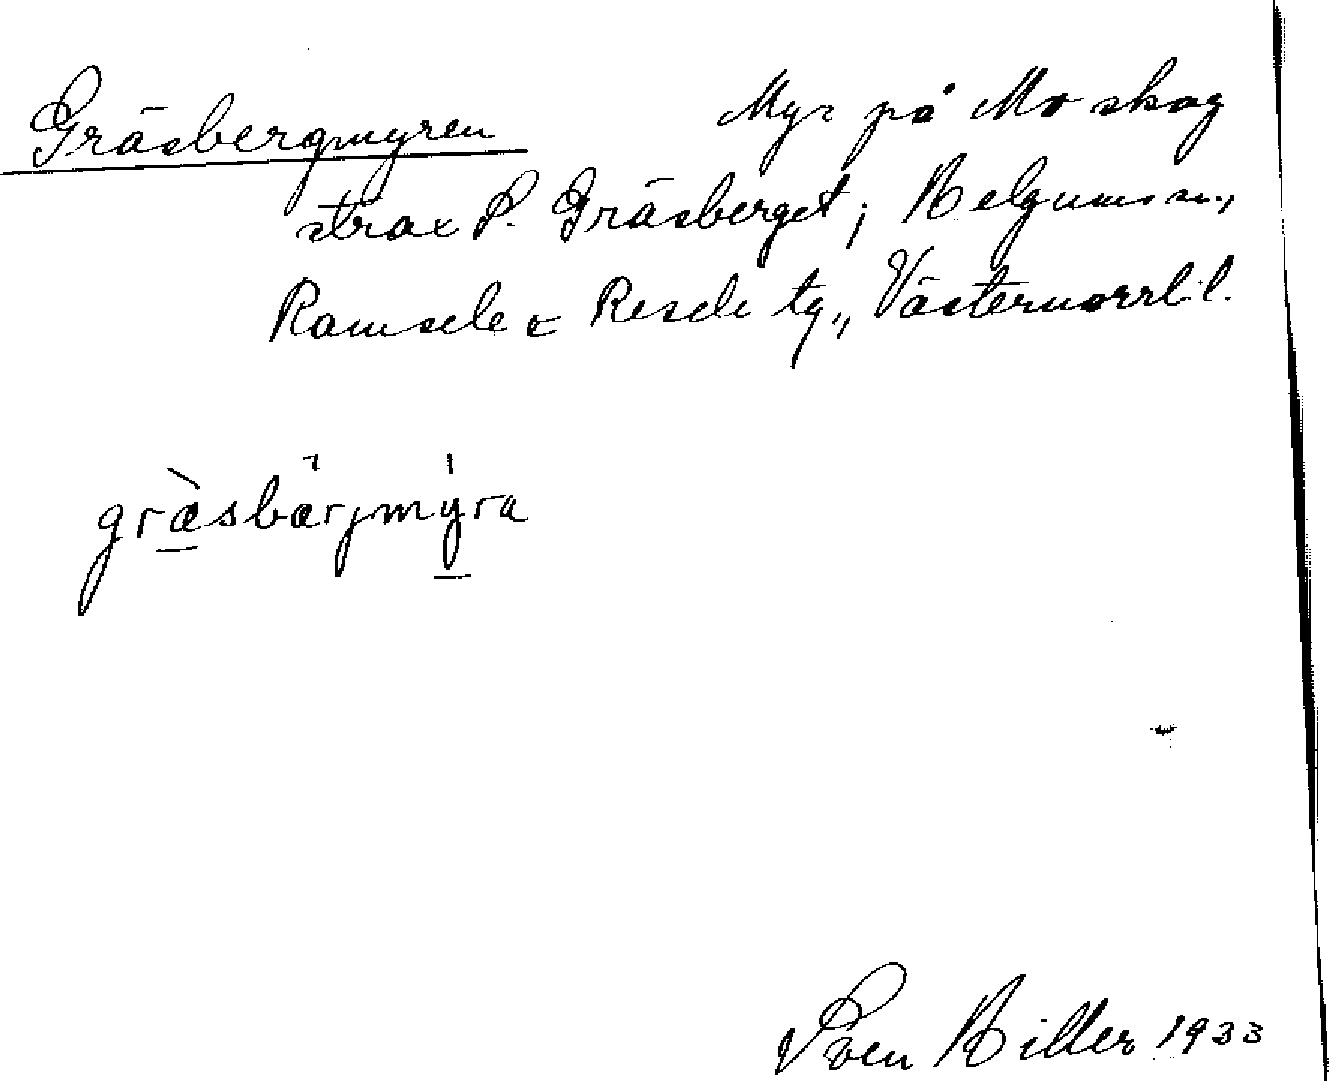 Gräsbergmyren Myr på Mo skog
strax S. Gräsberget; Helgums sn.,
Ramsele o Resele tg., Västernorrl. l.
gräsbärjmyra
Sven Hiller 1933